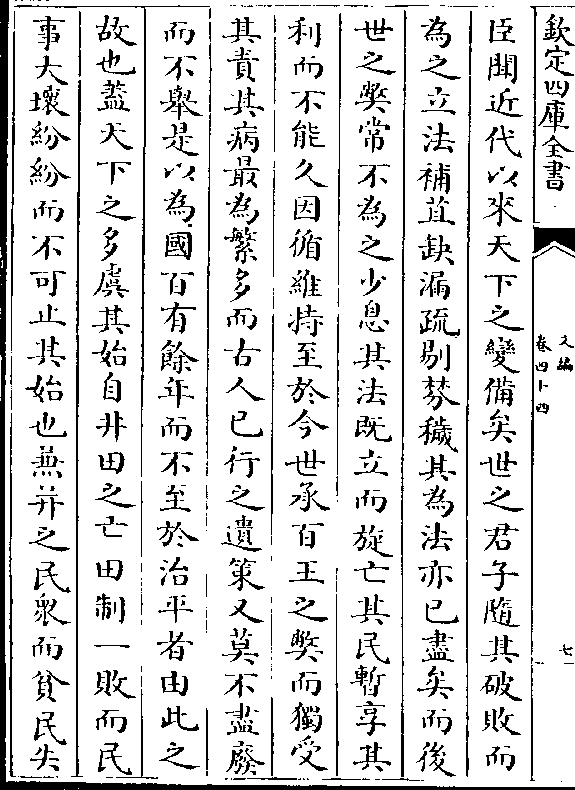 欽定四庫全書
文編
卷四十四
七
臣聞近代以來天下之變備矣世之君子隨其破敗而
為之立法補苴缺漏疏剔棼穢其為法亦已盡矣而後
世之弊常不為之少息其法既立而旋亡其民暫享其
利而不能久因循維持至於今世承百王之弊而獨受
其責其病最為繁多而古人已行之遺策又莫不盡廢
而不舉是以為國百有餘年而不至於治平者由此之
故也蓋天下之多虞其始自井田之亡田制一敗而民
事大壞紛紛而不可止其始也兼并之民衆而貧民失